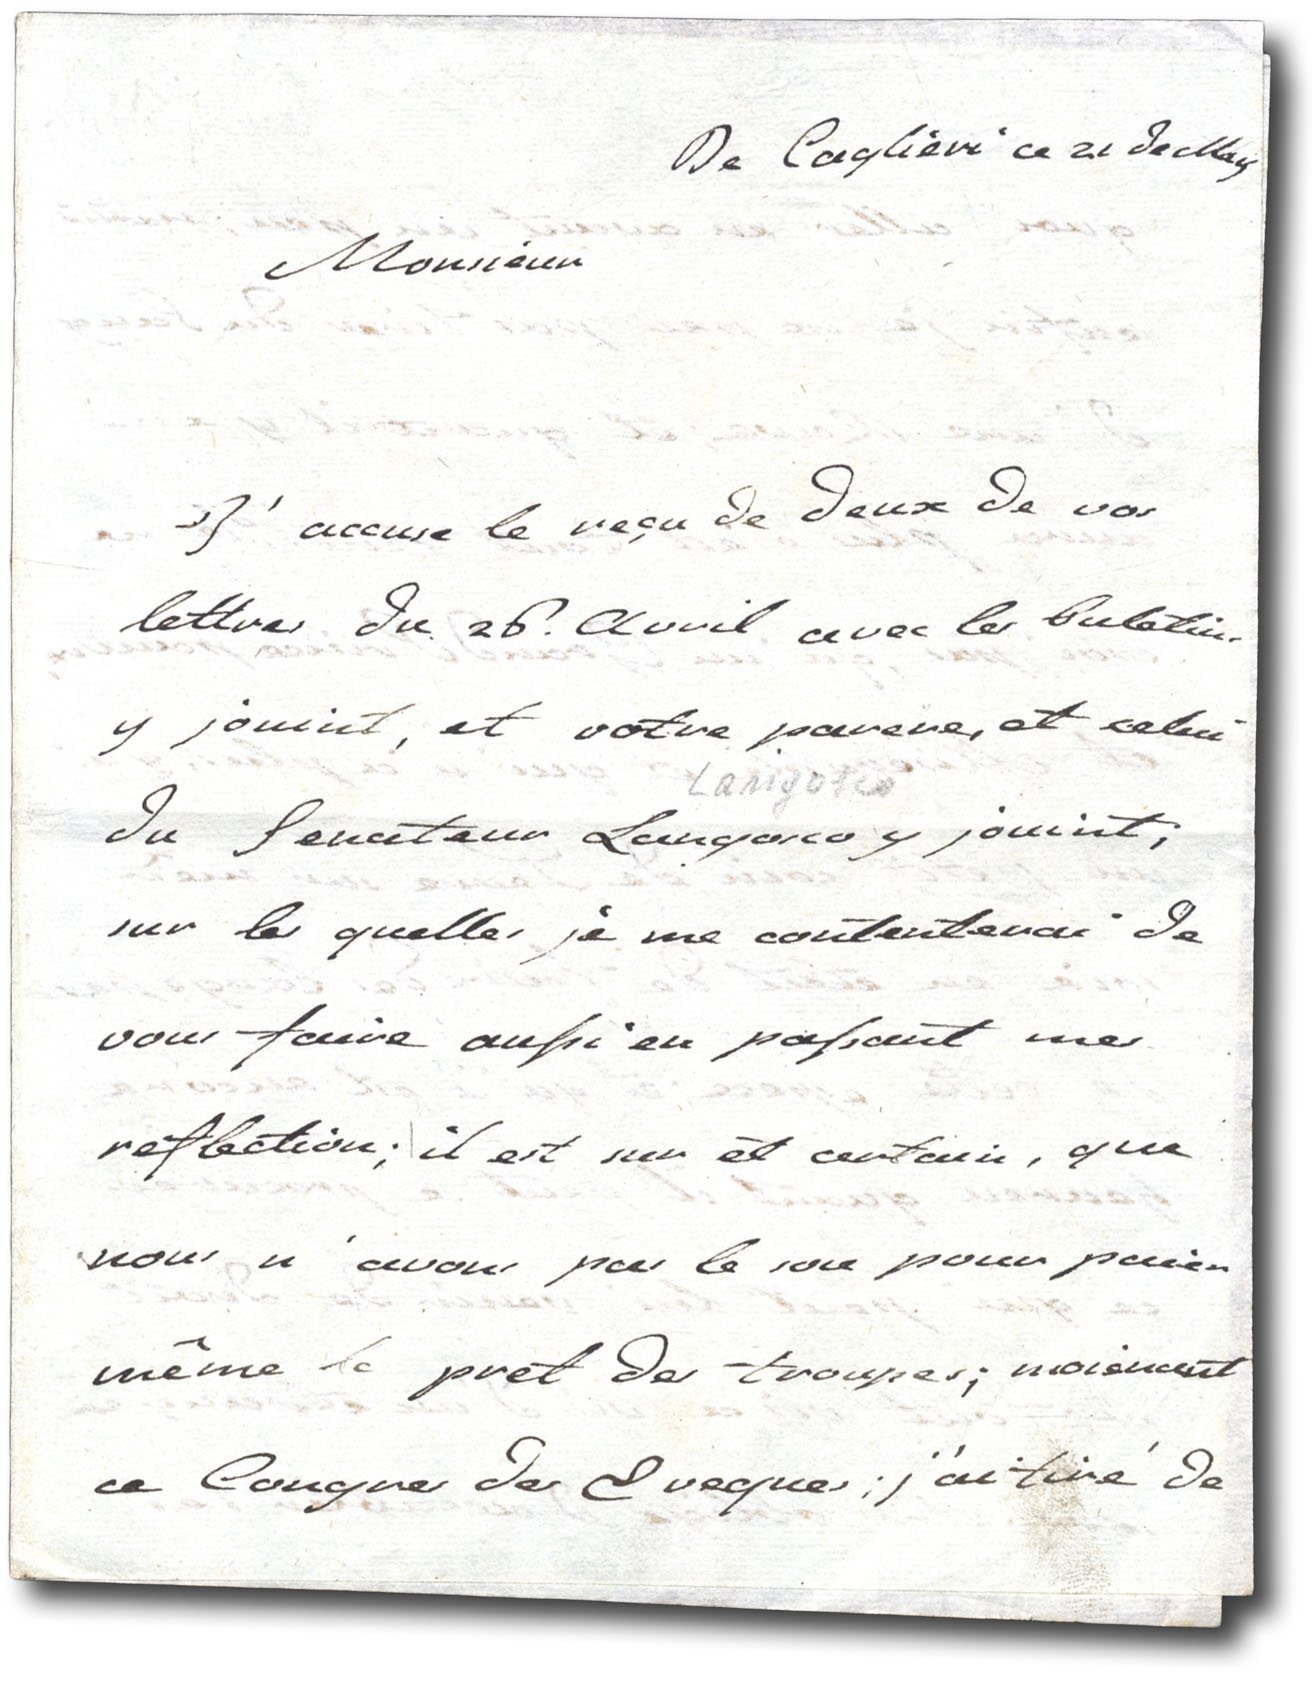 De Cagliéri ce 21 de May
Monsieur
J'accuse le reçu de deux de vos
lettres du 26. Avril avec les buletins
y jouint, et votre pareres, et celui
Langosco
du Senateur Langosco y jouint;
sur les quelles je me contenterai de
vous faire aussi en passant mes
reflection; il est sur et certain, que
nous n'avons pas le sou pour paier
même le pret des troupes; moienent
ce Congres des Eveques; j'ai tiré de